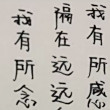 我有所念
隔在远远
我有所感